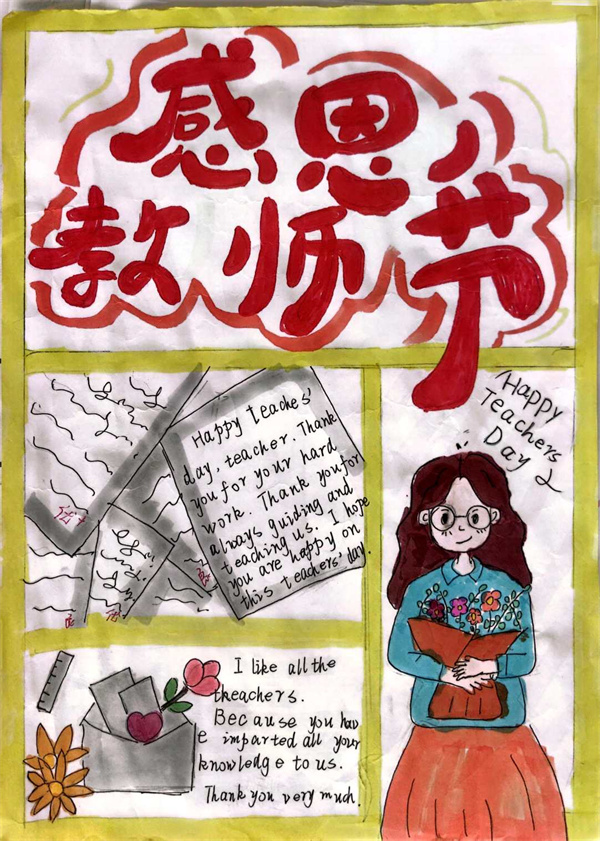 感恩
教师节
Happy teaches'
day, teacher. Thank
you for your hard
work. Thank you for
always guiding and
teaching us. I hope
you are happy on
this teachers' day.
Happy
Teachers
Day
I like all the
theachers.
Because you hav
e imparted all your
knowledge to us.
Thank you very much.